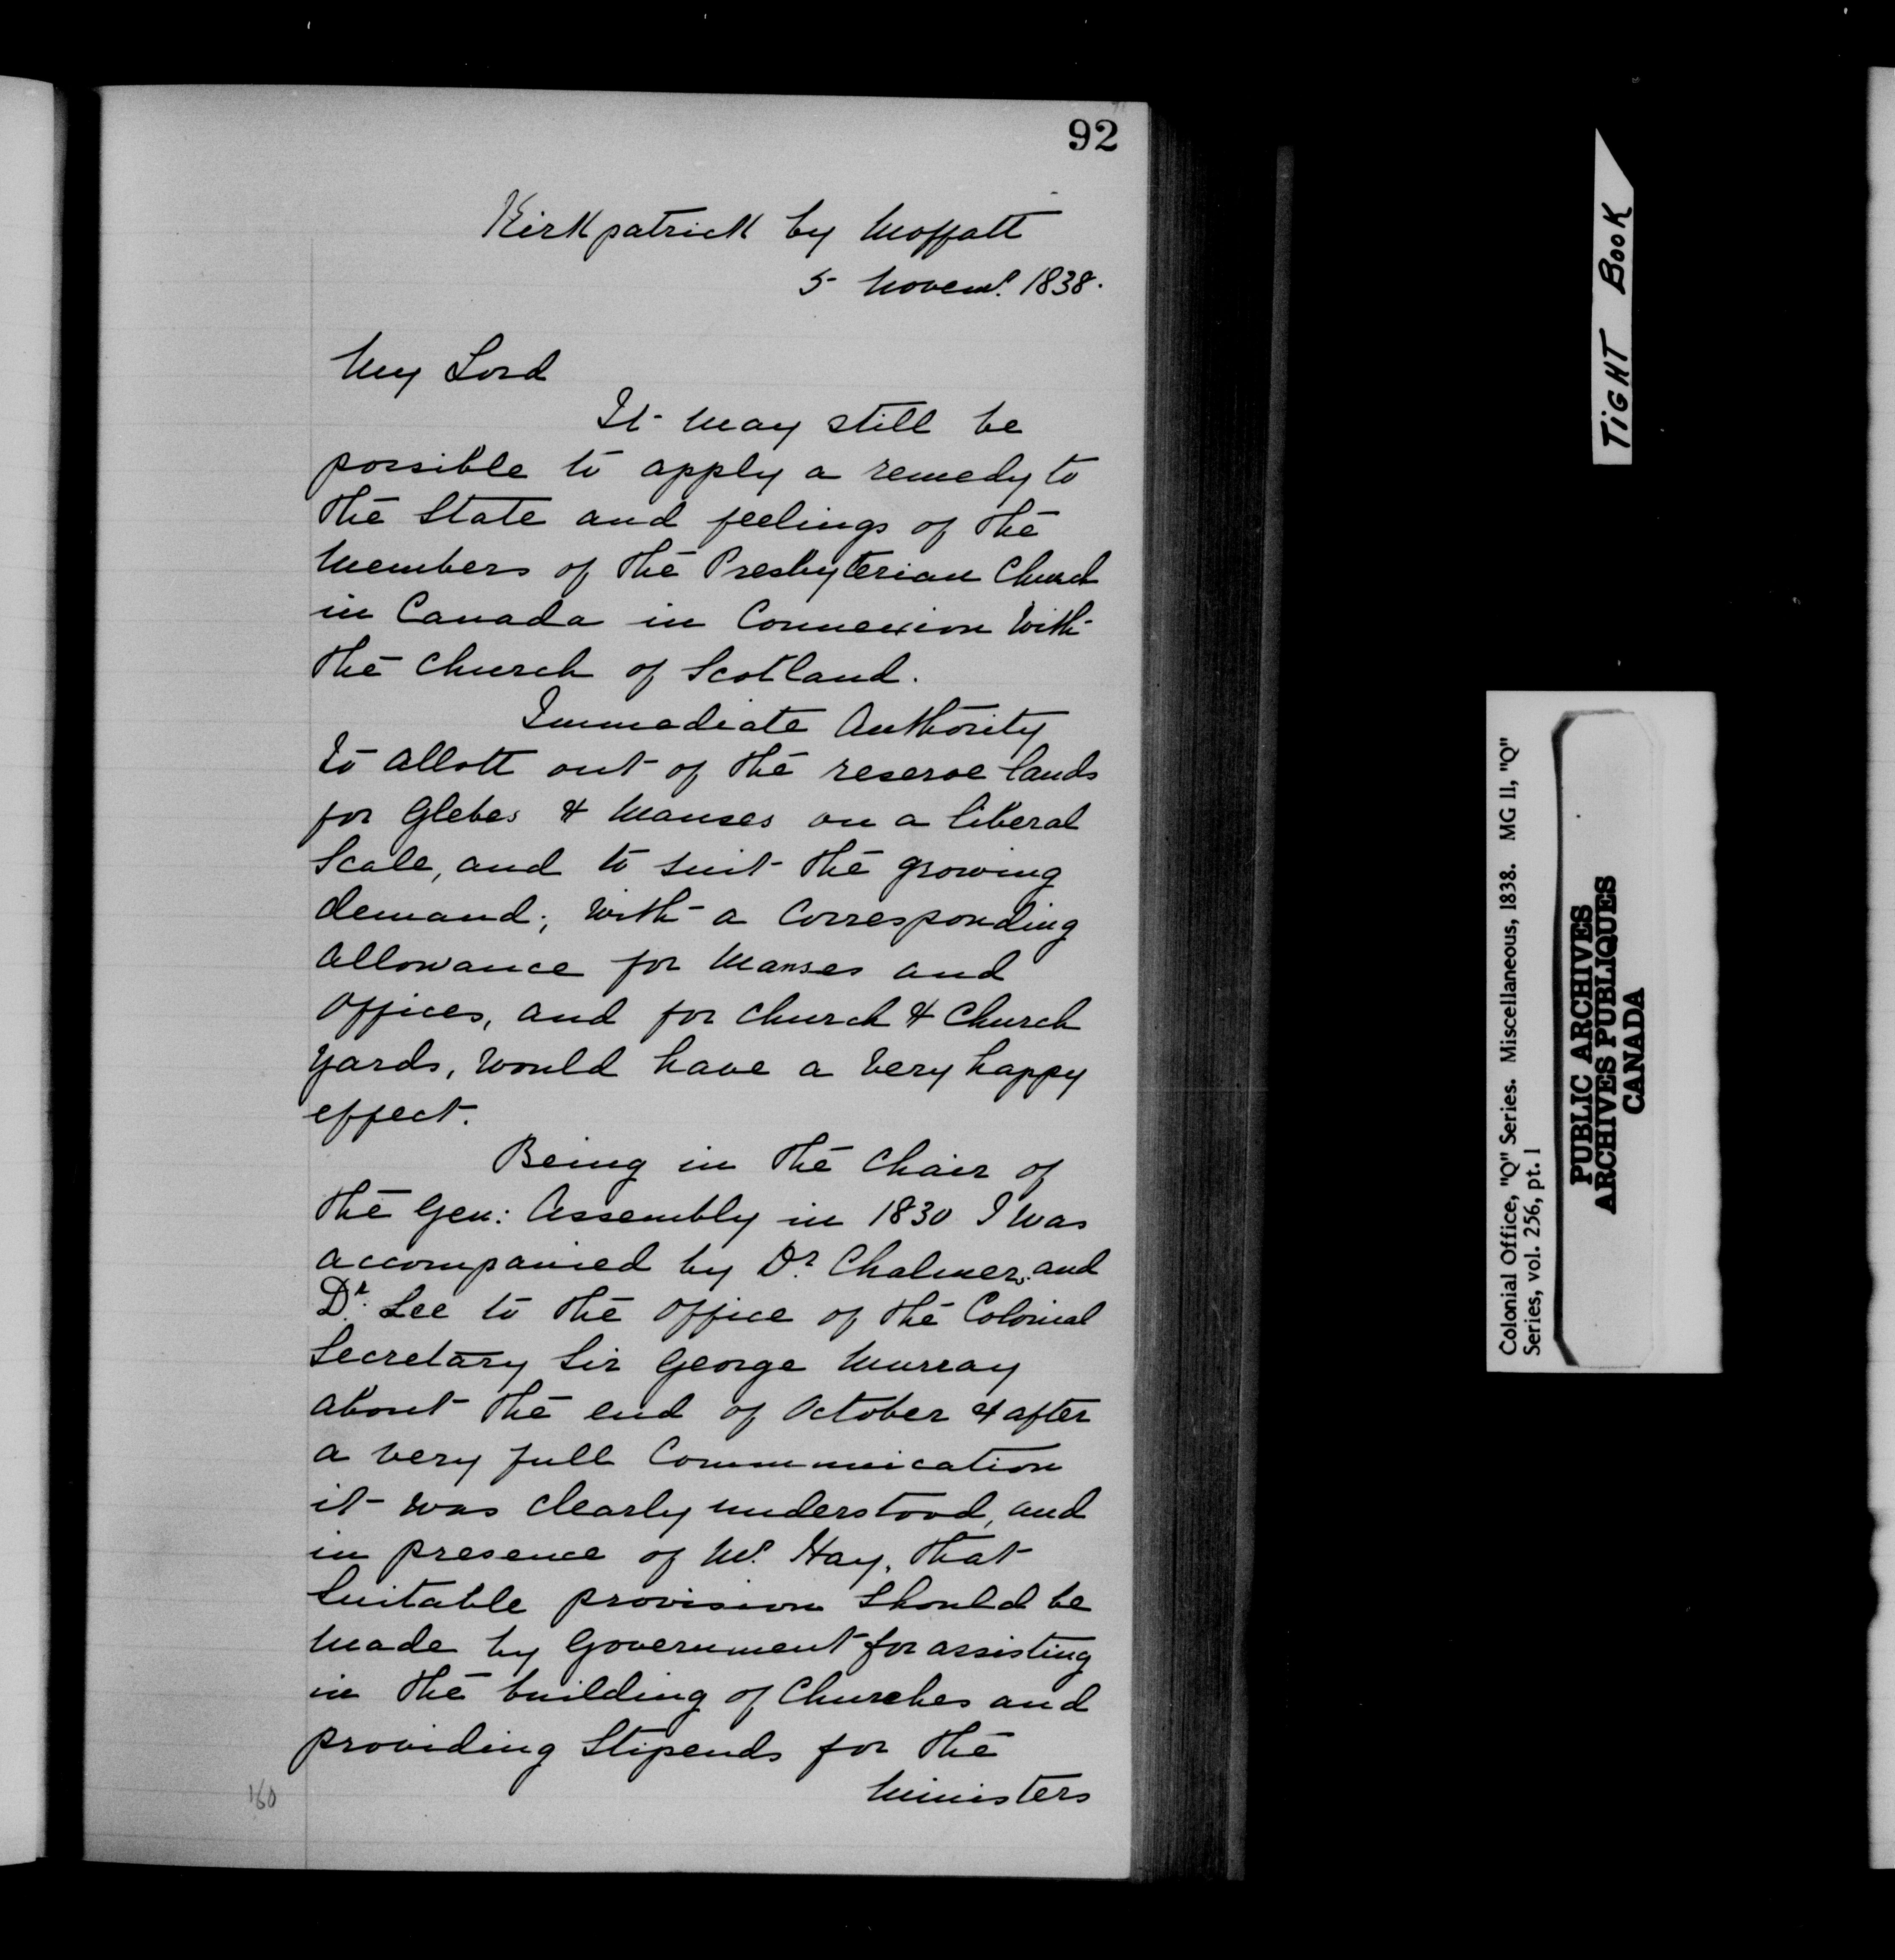 92
Kirkpatrick by Moffatt
5 Novemr. 1838.
My Lord
It may still be
possible to apply a remedy to
the State and feelings of the
Members of the Presbyterian Church
in Canada in Connexion With
the Church of Scotland.
Immediate Authority
to allott out of the reserve lands
for Glebes & Manses on a liberal
Scale, and to suit the growing
demand; with a Corresponding
allowance for Manses and
Offices, and for Church & Church
yards, Would have a very happy
effect.
Being in the Chair of
the Gen: Assembly in 1830 I was
accompanied by Dr. Chalmers and
Dr. Lee to the Office of the Colonial
Secretary Sir George Murray
about the end of October & after
a very full Communication
it was clearly understood, and
in presence of Mr. Hay, that
Suitable provision Should be
made by Government for assisting
in the building of Churches and
providing Stipends for the
Ministers
160
TIGHT BOOK
Colonial Office, "Q" Series. Miscellaneous, 1838. MG 11, "Q"
Series, vol. 256, pt. 1
PUBLIC ARCHIVES
ARCHIVES PUBLIQUES
CANADA